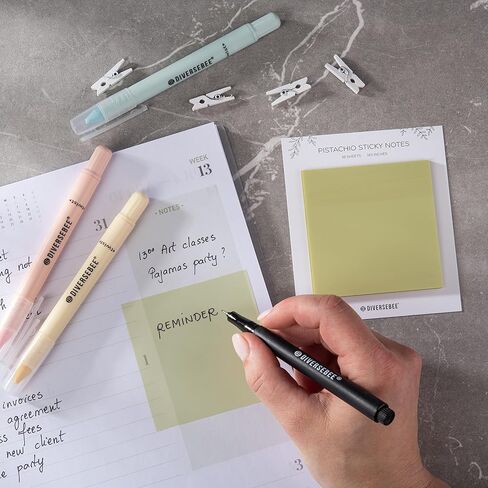 DIVERSEBEE
WEEK
13
31
NOTES
13⁰⁰ Art classes
Pajamas party?
REMINDER
1
3
invoices
agreement
fees
new client
party
DIVERSEBEE
DIVERSEBEE
PISTACHIO STICKY NOTES
DIVERSEBEE
DIVERSEBEE